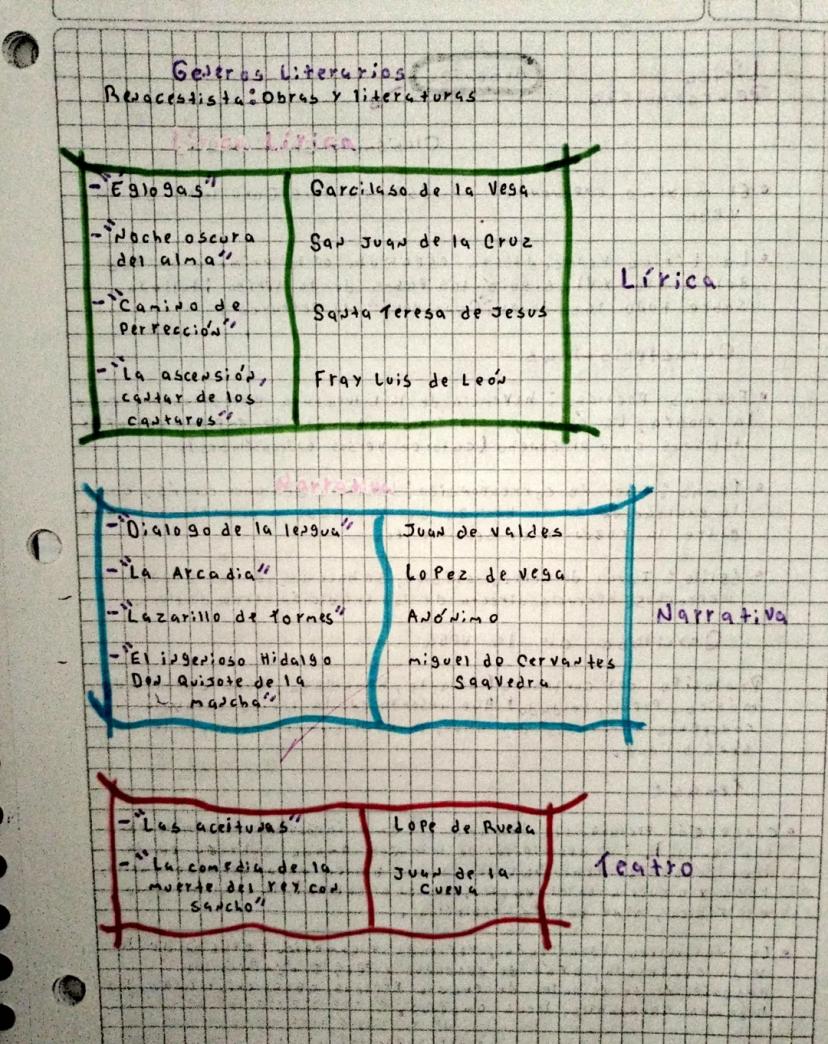 Generos Literarios
Renacestista: Obras y literaturas
Lírica
-"Églogas"
Garcilaso de la Vega
-"Noche oscura
del alma"
San Juan de la Cruz
-"Camino de
Perrección"
Santa Teresa de Jesus
-"La ascensión,
cantar de los
cantares"
Fray Luis de León
Lírica
Narrativa
-"Dialogo de la lengua"
Juan de valdes
-"La Arcadia"
Lopez de vega
-"Lazarillo de tormes"
Anónimo
-"El ingenioso Hidalgo
Don Quijote de la
mancha"
miguel de Cervantes
Saavedra
Narrativa
-"Las aceitunas"
Lope de Rueda
-"La comedia de la
muerte del rey con
sancho"
Juan de la
Cueva
Teatro